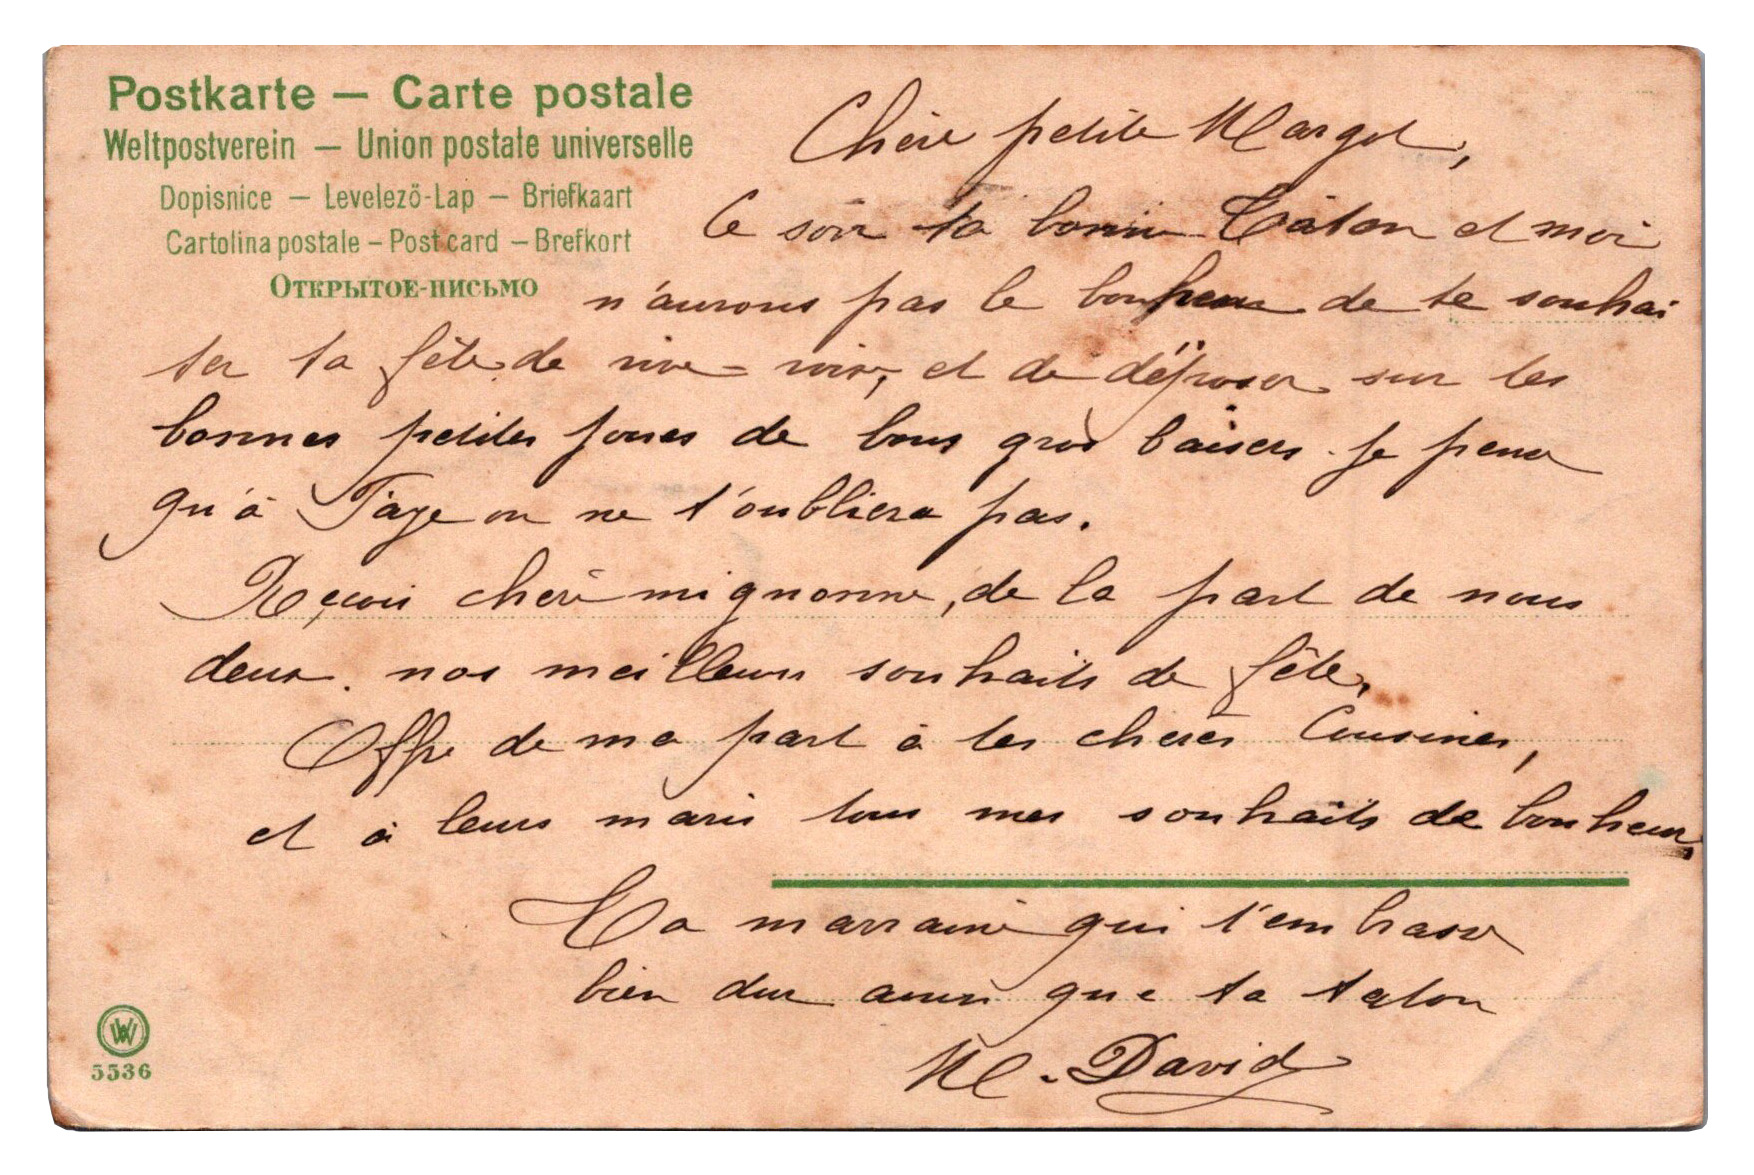 Postkarte — Carte postale
Weltpostverein — Union postale universelle
Dopisnice — Levelező-Lap — Briefkaart
Cartolina postale – Post card – Brefkort
Открытое-письмо
Chère petite Margot,
Ce soir ta bonne Tâton et moi
n'aurons pas le bonheur de te souhai
ter ta fête de vive-voix, et de déposer sur tes
bonnes petites joues de bons gros baisers. Je pense
qu'à on ne t'oubliera pas.
Reçois chère mignonne, de la part de nous
deux. nos meilleurs souhaits de fête.
Offre de ma part à tes chères Cousines,
et à leurs maris tous mes souhaits de bonheur.
Ta marraine qui t'embrasse
bien dur ainsi que ta taton
M. David
W
5536